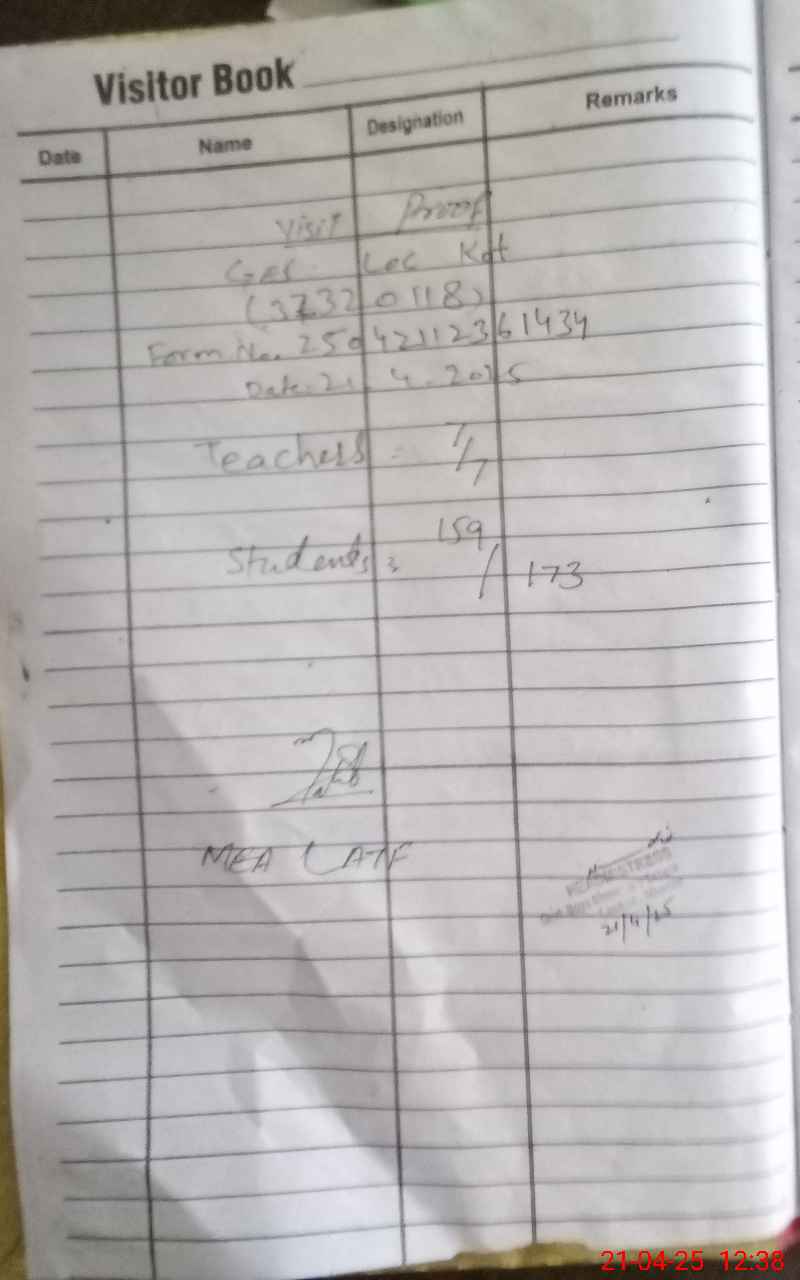 Visitor Book
Date Name Designation Remarks
Visit Proof
GES Lec Kot
(37320118)
Form No. 25042112361434
Date: 21.4.2025
Teachers = 7/7
Students: 159/173
MEA LATF
HEADMISTRESS
21/4/25
21-04-25 12:38